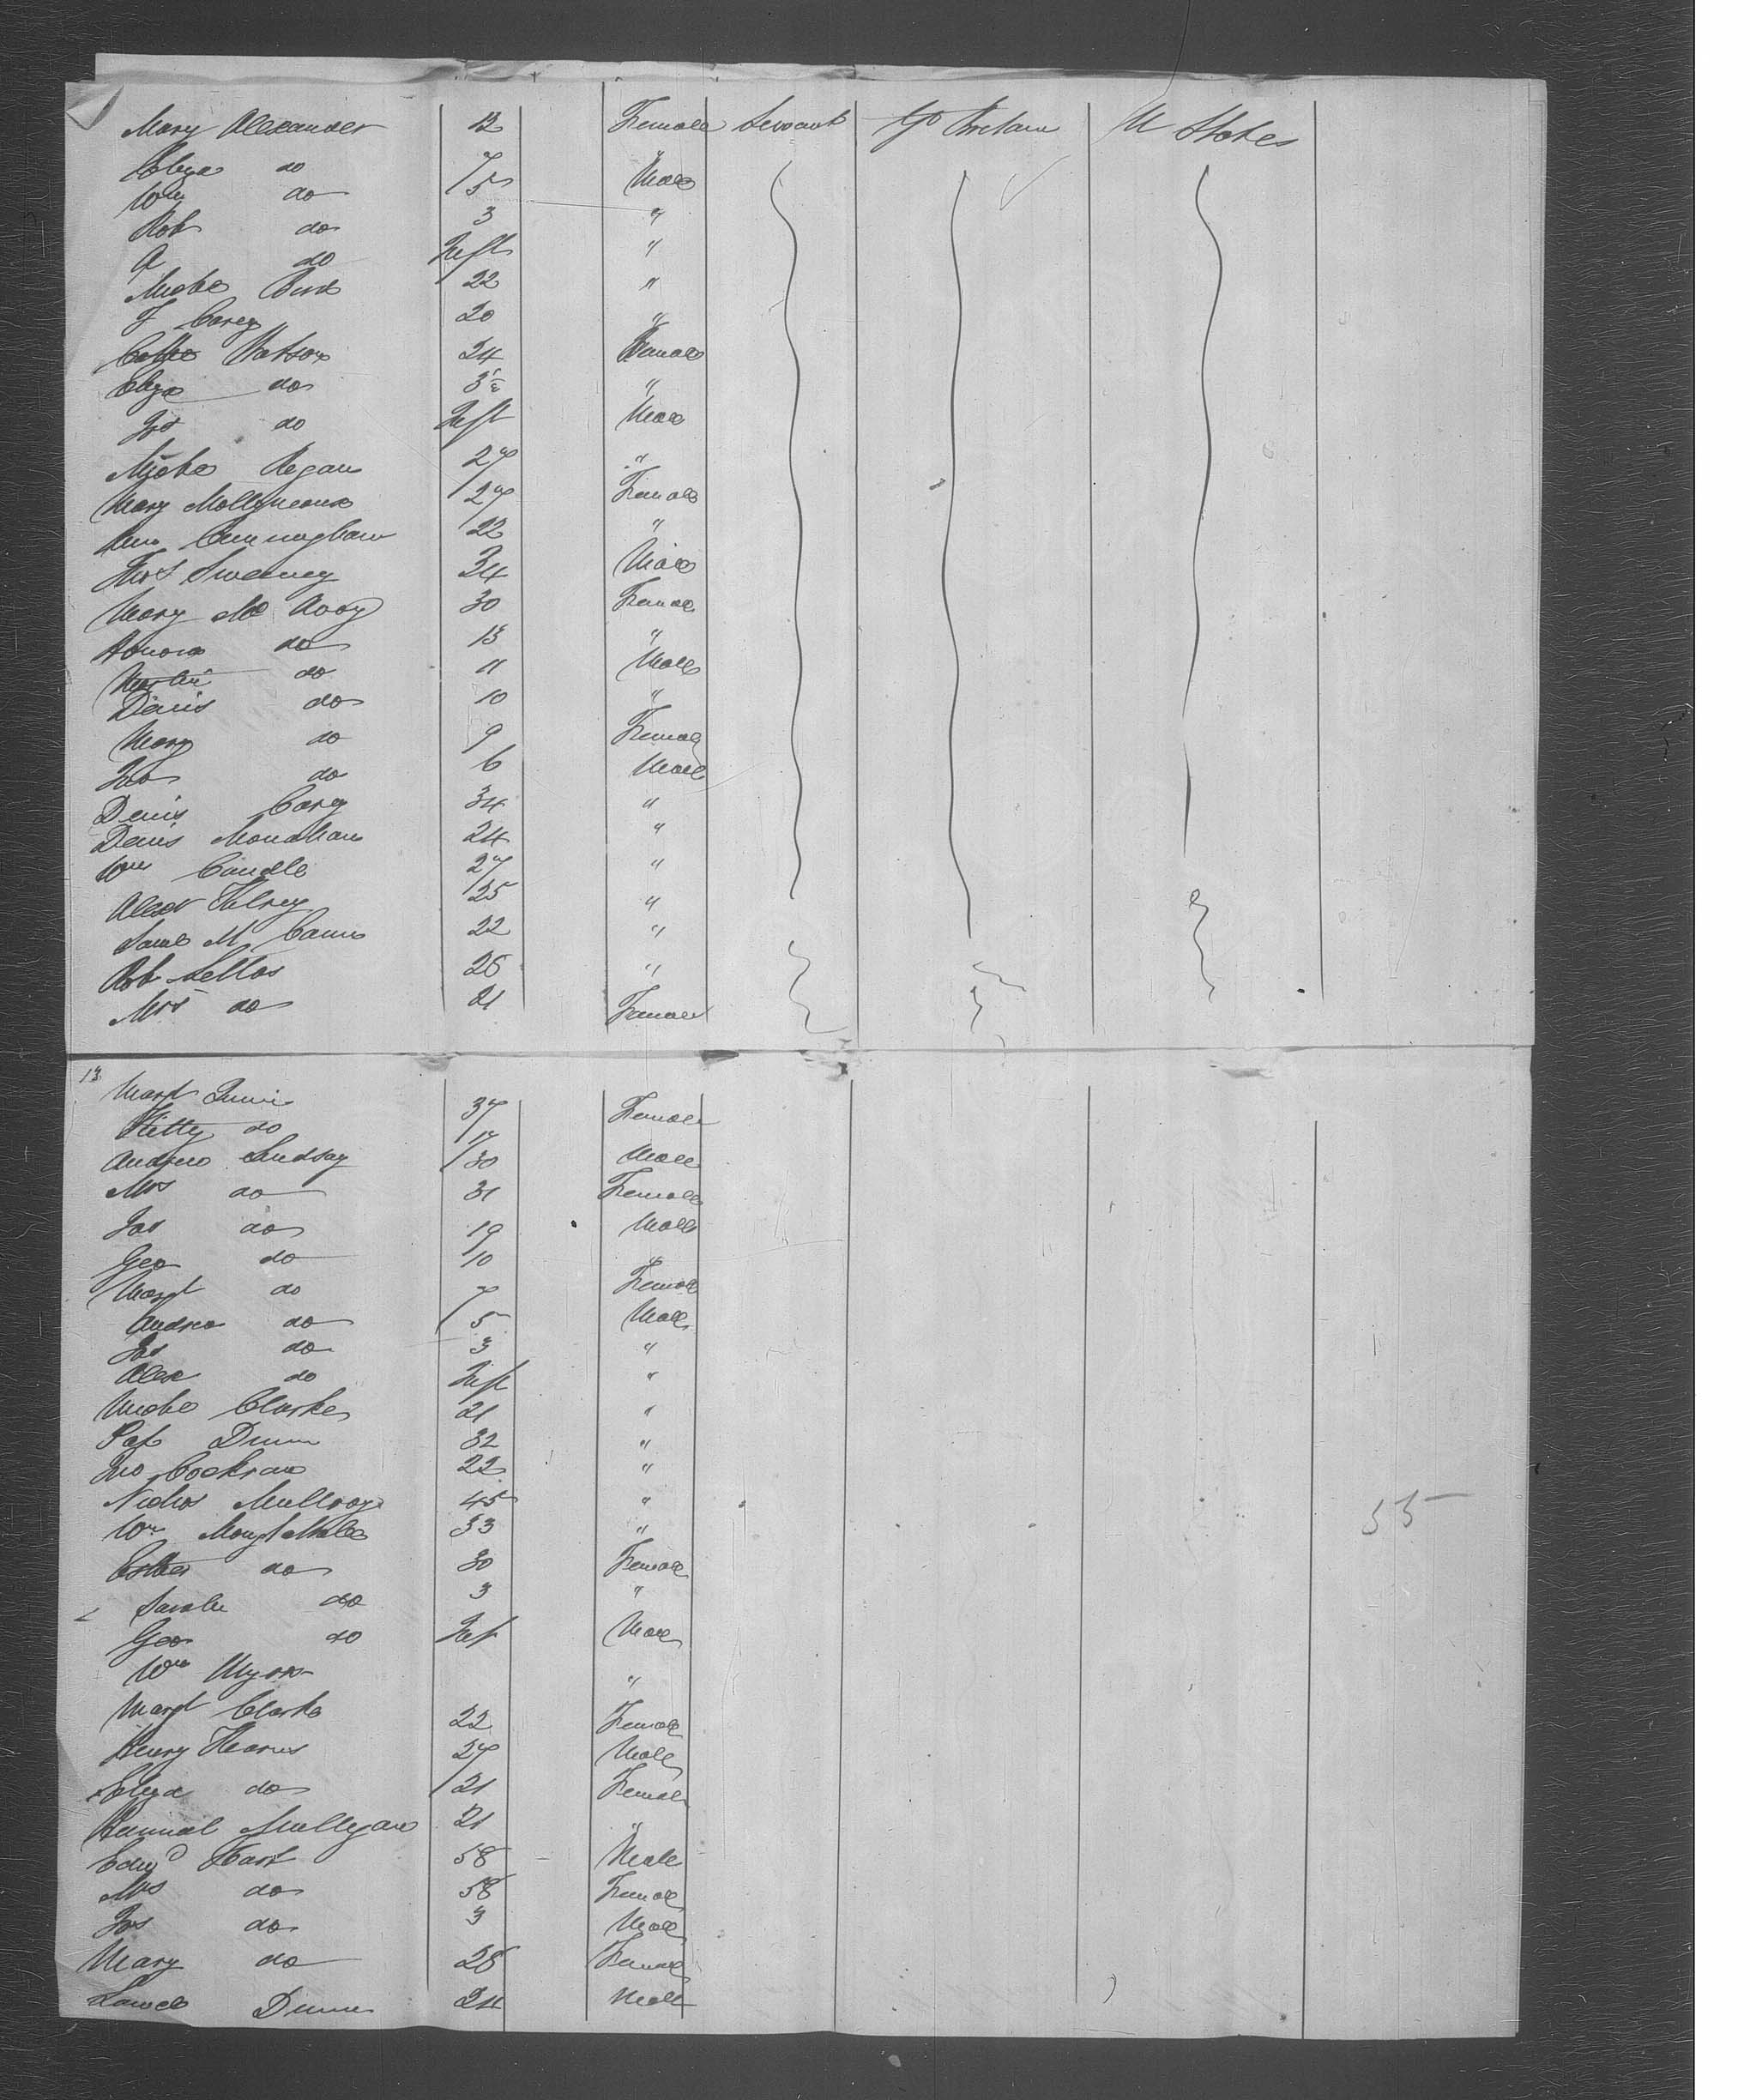 Mary Alexander 12 Female Servant Gt Britain U States
Eliza do 7 "
Wm do 5 Male
Rob do 3 "
A do Inft "
Miche 22 "
J Carey 20 "
Watson 24 Female
Eliza do "
Jas do Inft Male
Miche Regan 27 "
Mary Mollyneaux 27 Female
Ann Cunningham 22 "
Thos Sweeney 34 Male
Mary Mc Avoy 30 Female
Honora do 13 "
Martin do 11 Male
Denis do 10 "
Mary do 9 Female
Jno do 6 Male
Denis Carey 34 "
Denis Monahan 24 "
Wm Caudle 27 "
Alexr 25 "
Saml M Cann 22 "
Rob Sellas 26 "
Mrs do 21 Female
13
Margt 37 Female
Kitty do 17
Andrew Lindsay 30 Male
Mrs do 31 Female
Jas do 19 Male
Geo do 10 "
Margt do 7 Female
Andrew do 5 Male
Jas do 3 "
Alex do Inft "
Miche Clarke 21 "
Pat Dunn 32 "
Jno Cockran 22 "
Nichos Mullroy 45 "
Wm 33 "
Esther do 30 Female
Sarah do 3 "
Geo do Inft Male
Wm "
Margt Clarke 22 Female
Henry Hearns 27 Male
Eliza do 21 Female
Hannah Mulligan 21 "
Edwd Hart 58 Male
Mrs do 58 Female
Jas do 3 Male
Mary do 28 Female
Dunn 24 Male